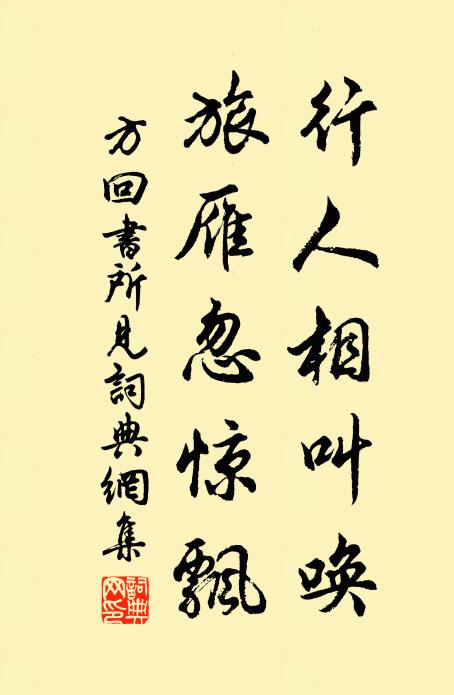 行人相叫唤
旅雁忽惊飘
方回书所见詞典網集
詞典網印